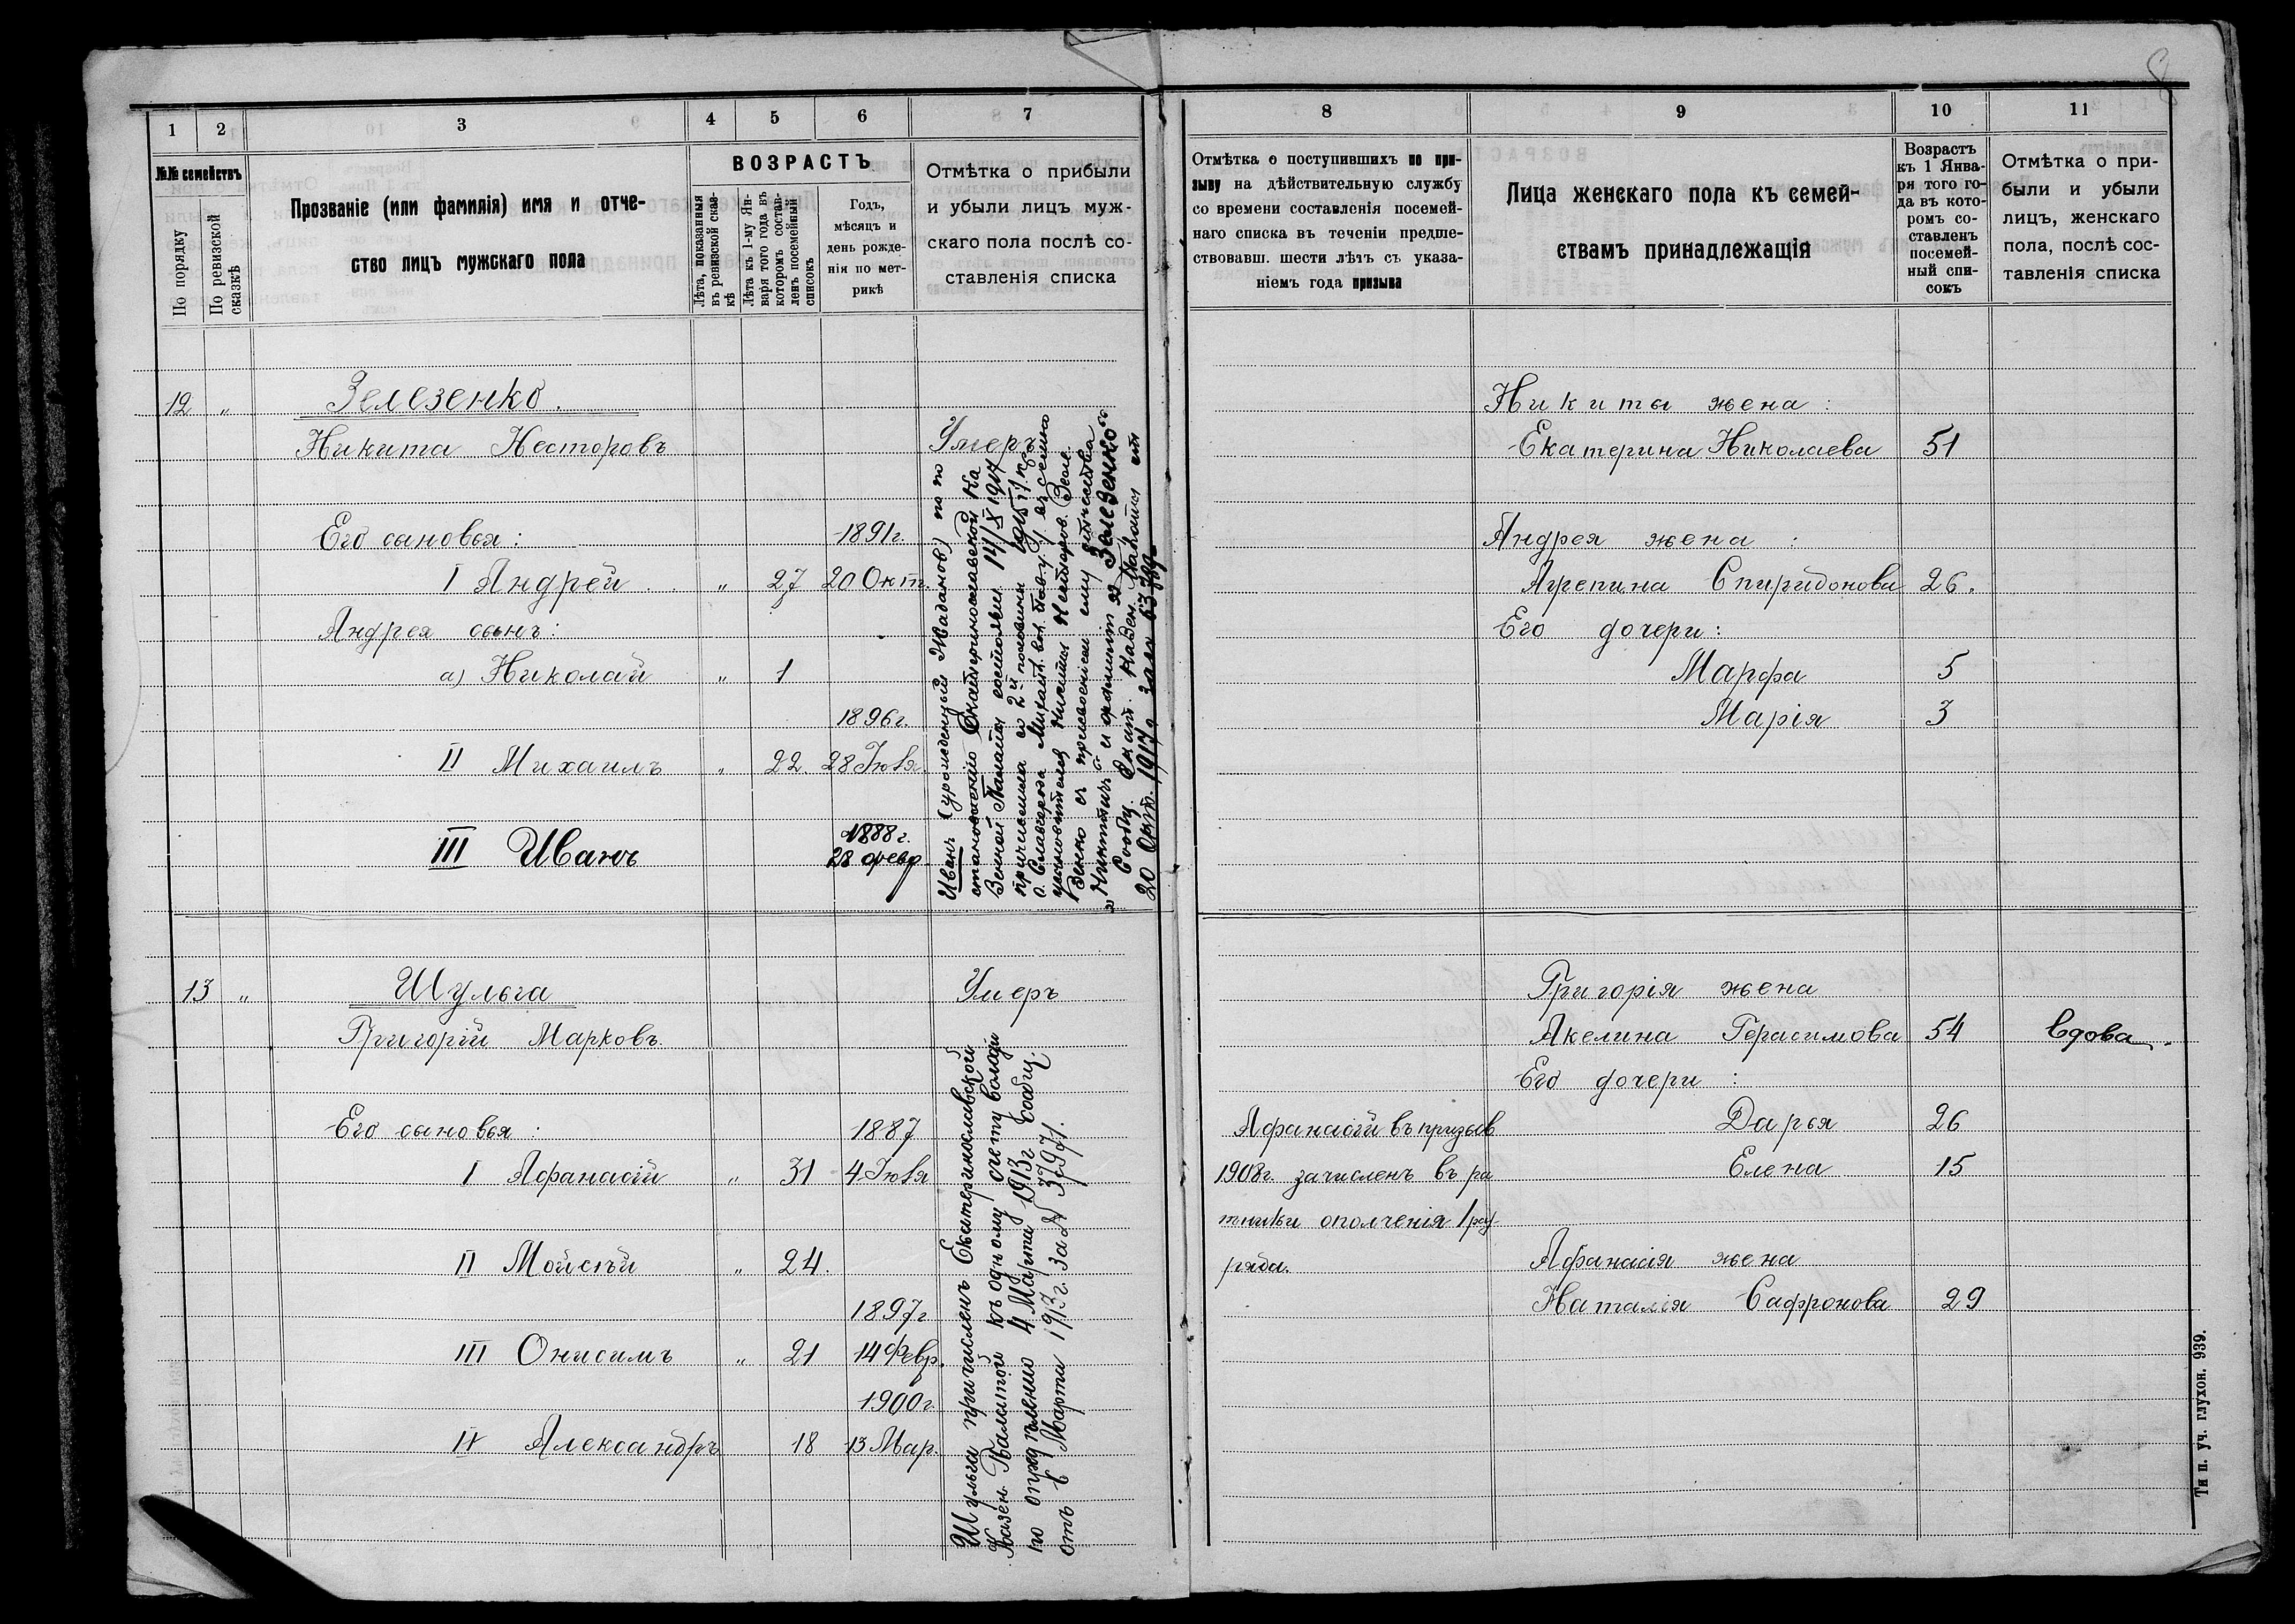 8
1 2 3 4 5 6 7
№№ семействъ
По порядку
По ревизской сказкѣ
Прозваніе (или фамилія) имя и отче-
ство лицъ мужскаго пола
ВОЗРАСТЪ
Лѣта, показанныя
въ ревизской сказ-
кѣ
Лѣта къ 1-му Ян-
варя того года въ
которомъ состав-
ленъ посемейный
списокъ
Годъ,
мѣсяцъ и
день рожде-
нія по мет-
рикѣ
Отмѣтка о прибыли
и убыли лицъ муж-
скаго пола послѣ со-
ставленія списка
12 „ Зелезенко.
Никита Несторовъ Умеръ
Его сыновья: 1891г.
I Андрей „ 27 20 Окт.
Андрея сынъ:
а) Николай „ 1
1896г.
II Михаилъ „ 22. 28 Іюля
1888г.
III Иванъ 28 февр.
Иванъ (урожденный) по по
становленію Екатеринославской Ка
зенной Палаты состоявш. 14/X 1917
причислена со 2й половины 1915 г. къ
о. Славгорода Михайл. вол. Пав. у. въ семью
усыновителя Никиты Несторов. Зеле
зенко съ присвоеніемъ ему отчества
„Никитичъ" и фамиліи „Зелезенко"
Сообщ. Екат. Казен. Палаты от
20 Окт. 1917г. за №
13 „ Шульга Умеръ
Григорій Марковъ.
Его сыновья: 1887
I Афанасій „ 31 4 Іюля
II Мойсѣй „ 24.
1897г
III Онисимъ „ 21 14 Февр.
1900г
IV Александръ 18 13 Мар.
Шульга причисленъ Екатеринославской
Казен. Палатой къ одному счету волости
по опредѣленію 4 Марта 1913г. Сообщ.
отъ 6 Марта 1913г. за № 37971.
8 9 10 11
Отмѣтка о поступившихъ по при-
зыву на дѣйствительную службу
со времени составленія посемей-
наго списка въ теченіи предше-
ствовавш. шести лѣтъ съ указа-
ніемъ года призыва
Лица женскаго пола къ семей-
ствамъ принадлежащія
Возрастъ
къ 1 Янва-
ря того го-
да въ кото-
ромъ со-
ставленъ
посемей-
ный спи-
сокъ
Отмѣтка о при-
были и убыли
лицъ, женскаго
пола, послѣ сос-
тавленія списка
Никиты жена:
Екатерина Николаева 51
Андрея жена:
Агрепина Спиридонова 26.
Его дочери:
Марфа 5
Марія 3
Григорія жена
Акелина Герасимова 54 Вдова.
Его дочери:
Афанасій въ призыв Дарья 26
1908г. зачисленъ въ ра Елена 15
тники ополченія I раз-
ряда. Афанасія жена
Наталія Сафронова 29
Тип. уч. глухон. 939.